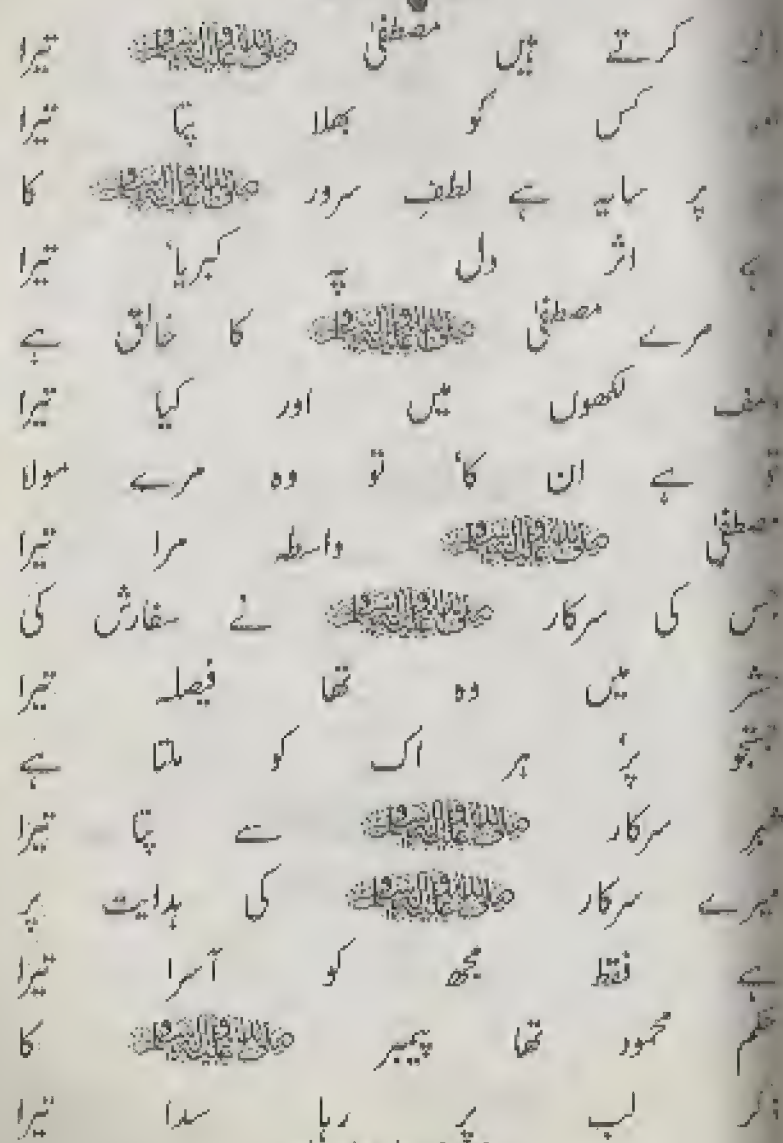 کرتے ہیں مصطفیٰ صلی اللہ علیہ وآلہ وسلم تیرا
کس کو بھلا پتا تیرا
پر سایہ ہے لطفِ سرور صلی اللہ علیہ وآلہ وسلم کا
ہے اثر دل پہ کبریا تیرا
مرے مصطفیٰ صلی اللہ علیہ وآلہ وسلم کا خالق ہے
لکھوں میں اور کیا تیرا
تو ہے ان کا' تو وہ مرے مولا
مصطفیٰ صلی اللہ علیہ وآلہ وسلم واسطہ مرا تیرا
جس کی سرکار صلی اللہ علیہ وآلہ وسلم نے سفارش کی
میں وہ تھا فیصلہ تیرا
پر' ہر اک کو ملتا ہے
سرکار صلی اللہ علیہ وآلہ وسلم سے پتا تیرا
میرے سرکار صلی اللہ علیہ وآلہ وسلم کی ہدایت پر
ہے فقط مجھ کو آسرا تیرا
محمود تھا پیمبر صلی اللہ علیہ وآلہ وسلم کا
ذکر لب پر رہا سدا تیرا